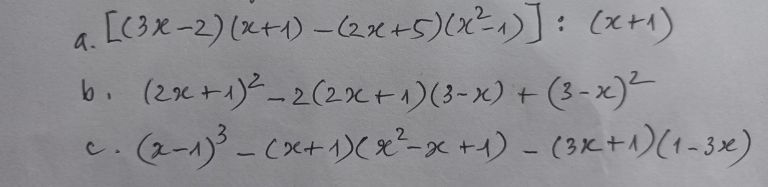 a. [(3x-2)(x+1) -(2x+5)(x²-1)] : (x+1)
b. (2x+1)² - 2(2x+1)(3-x) + (3-x)²
c. (x-1)³ - (x+1)(x²-x+1) - (3x+1)(1-3x)